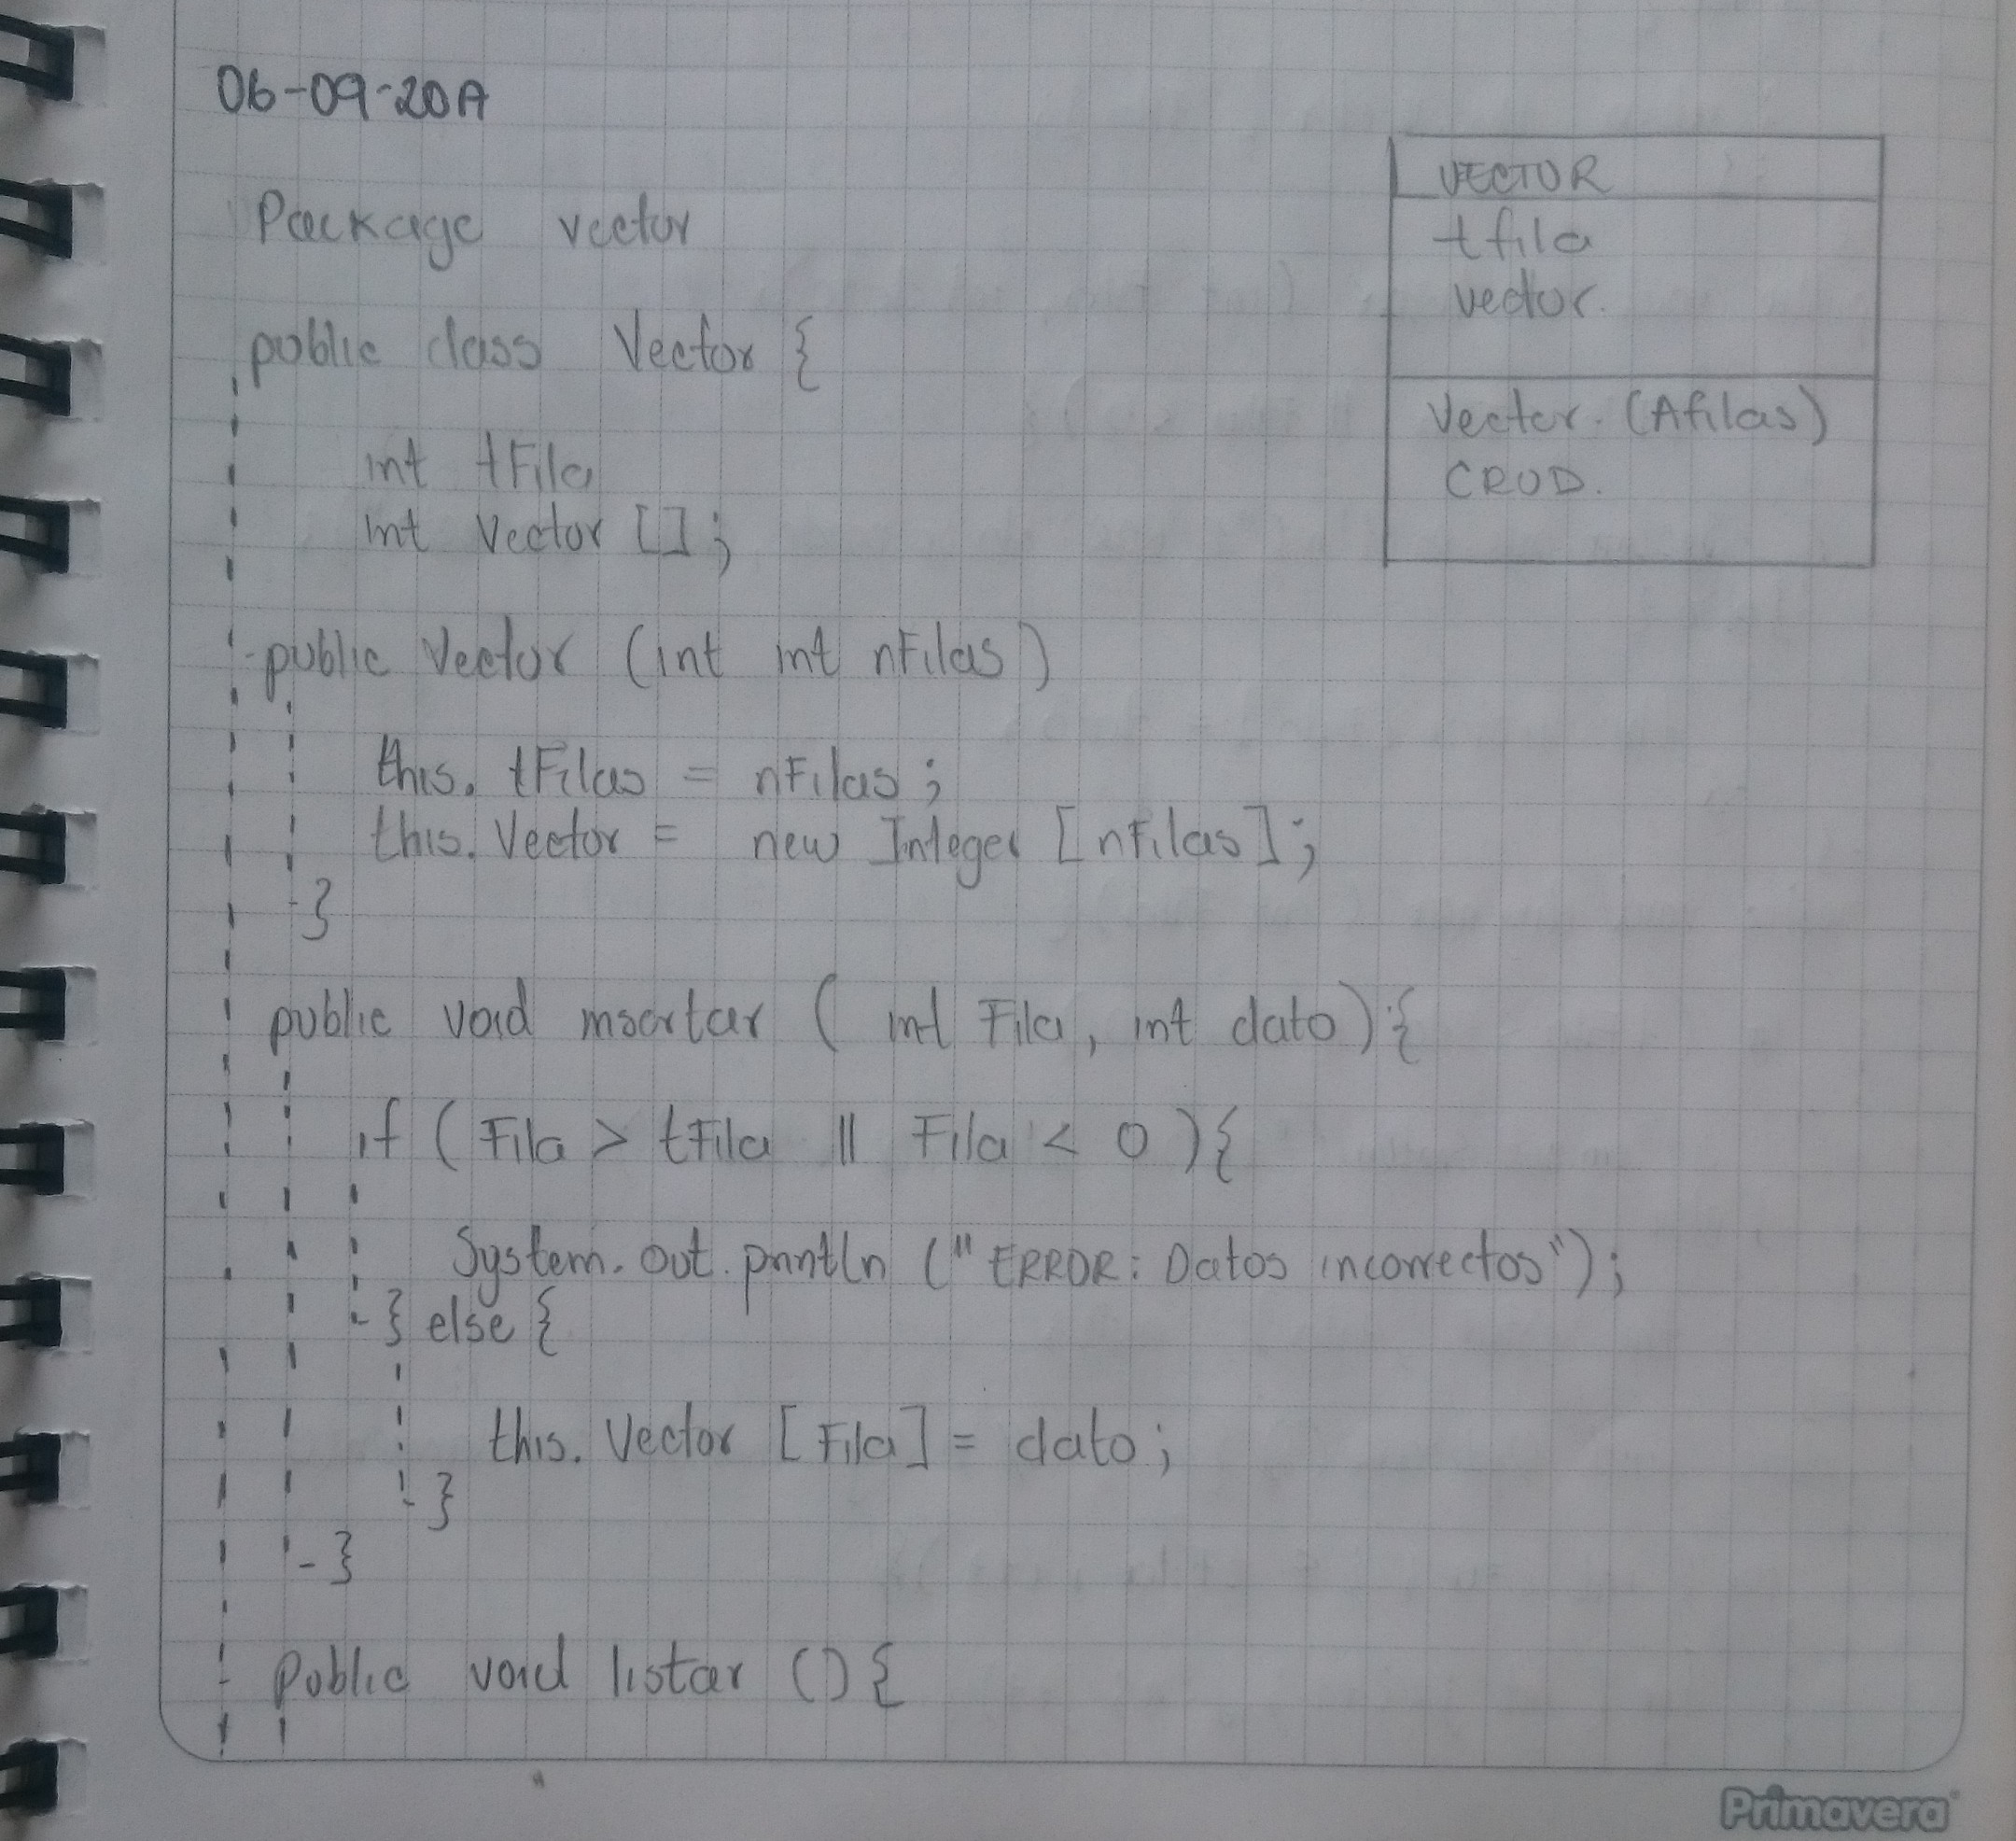 06-09-20A
Package vector
public class Vector {
int tFila
int Vector [];
public Vector (int int nFilas)
this. tFilas = nFilas ;
this. Vector = new Integer [nFilas];
}
public void insertar ( int Fila, int dato) {
if ( Fila > tFila || Fila < 0 ){
System. out. println ("ERROR: Datos incorrectos");
} else {
this. Vector [Fila] = dato ;
}
}
public void listar () {
VECTOR
tfila
vector.
Vector. (Afilas)
CRUD.
Primavera